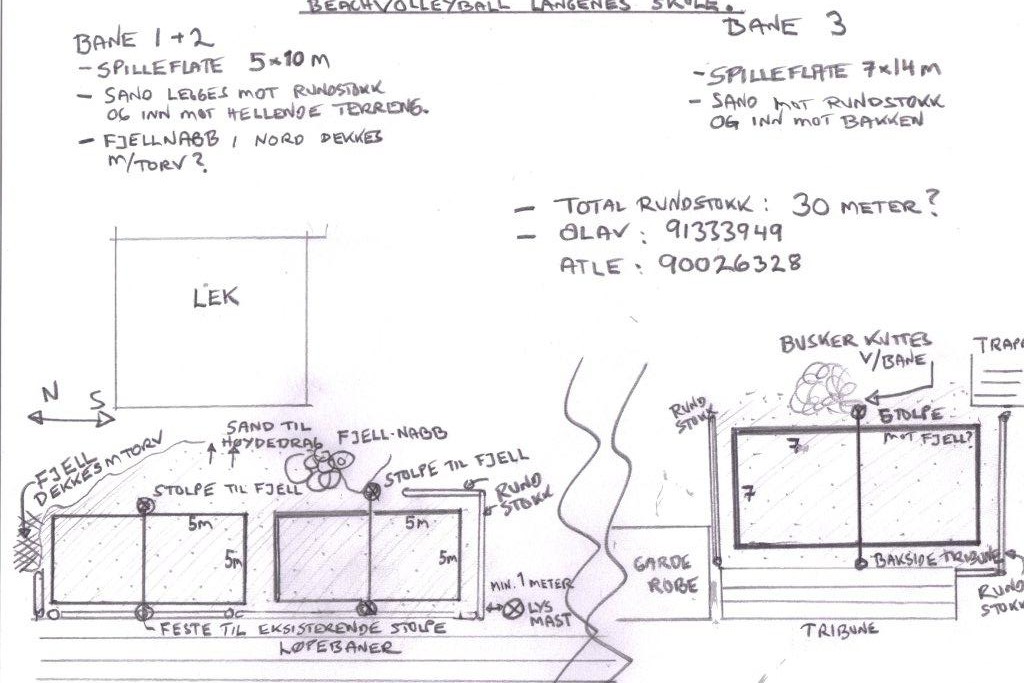 BEACHVOLLEYBALL LANGENES SKOLE.
BANE 1+2
- SPILLEFLATE 5x10 M
- SAND LEGGES MOT RUNDSTOKK
OG INN MOT HELLENDE TERRENG.
- FJELLNABB I NORD DEKKES
M/TORV?
BANE 3
- SPILLEFLATE 7x14 M
- SAND MOT RUNDSTOKK
OG INN MOT BAKKEN
- TOTAL RUNDSTOKK : 30 METER?
- OLAV : 91333949
ATLE : 90026328
LEK
N S
FJELL
DEKKES M TORV
SAND TIL
HØYDEDRAG
FJELL-NABB
STOLPE TIL FJELL
STOLPE TIL FJELL
RUND
STOKK
5m
5m
5m
5m
MIN. 1 METER
LYS
MAST
FESTE TIL EKSISTERENDE STOLPE
LØPEBANER
BUSKER KUTTES
V/BANE
TRAPP
RUND
STOKK
STOLPE
MOT FJELL?
7
7
GARDE
ROBE
BAKSIDE TRIBUNE
RUND
STOKK
TRIBUNE